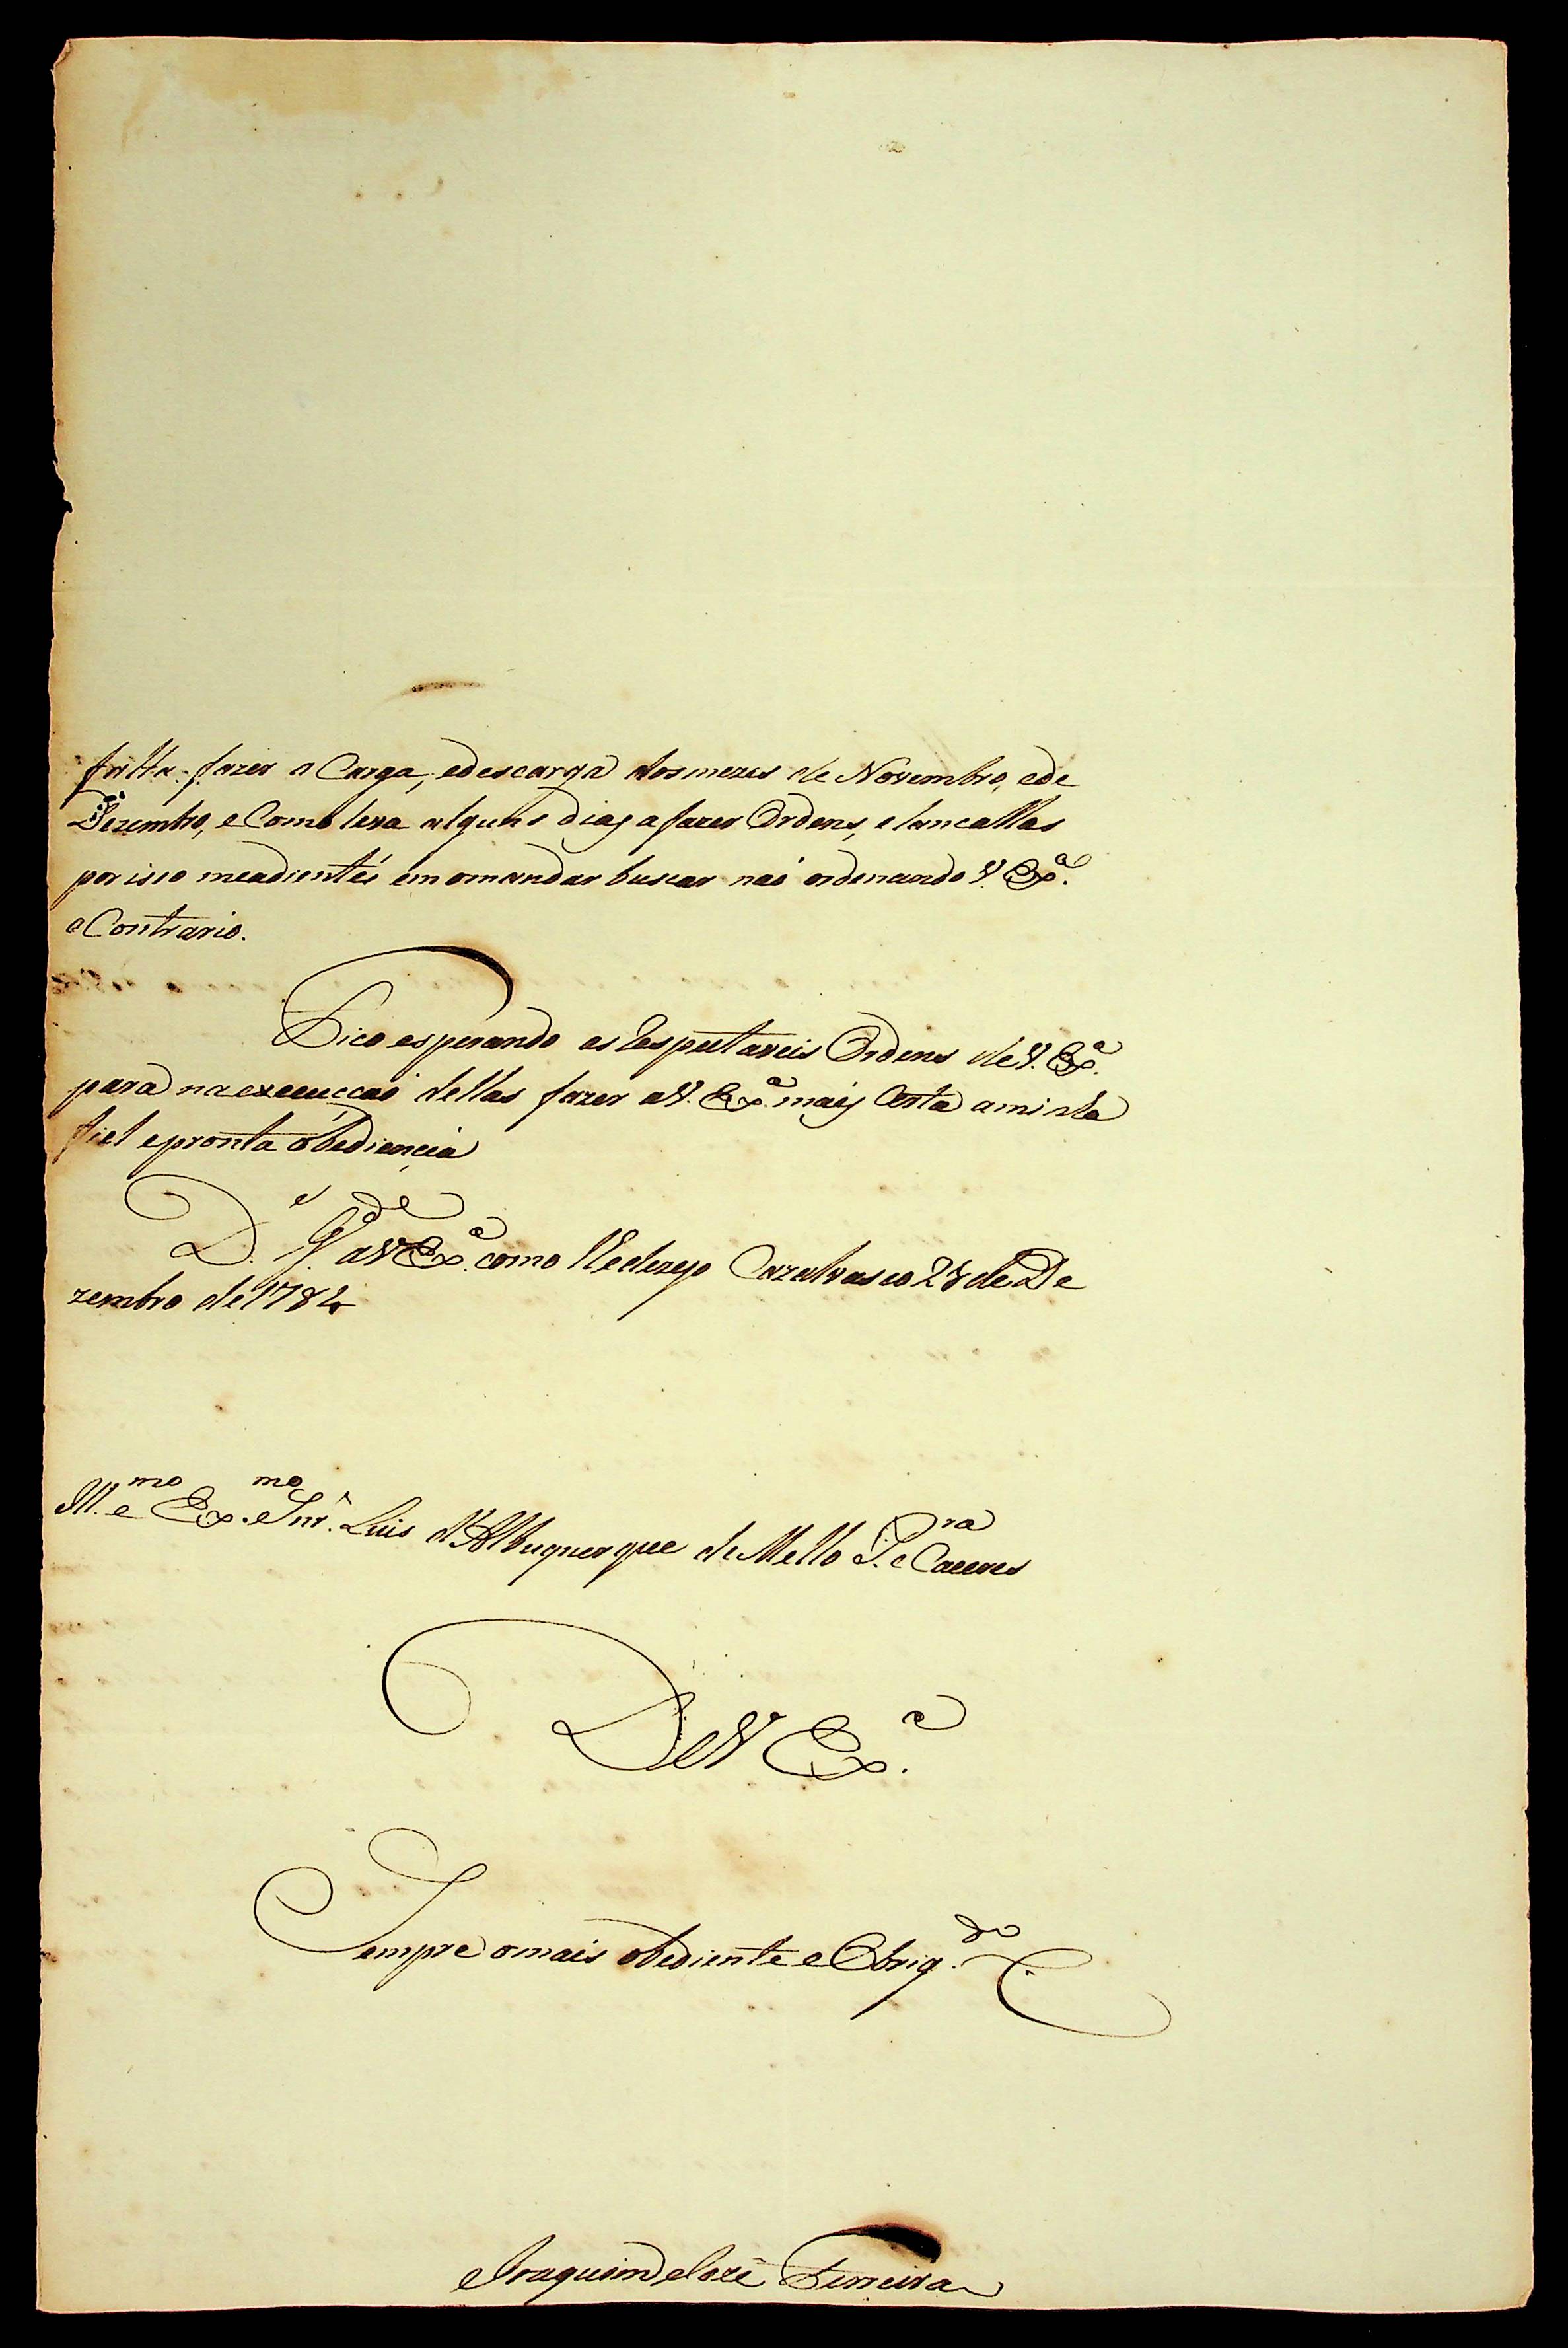 falta fazer a Carga, edescarga dosmezes de Novembro, ede
Dezembro, e Como leva alguns dias afazer Ordens, elancallas
porisso meadientei emomandar buscar naõ ordenando V. Ex.ª
o Contrario.
Fico esperando as Respeitaveis Ordens deV. Ex.ª
para na execucçaõ dellas fazer aV. Ex.ª mais Certa aminha
fiel epronta obediencia
D.s g.de aV Ex.ª como lhe dezejo Cazalvasco 28 de De
zembro de 1784
Ill.mo e Ex.mo Snr. Luis d'Albuquerque de Mello P.ra e Caceres
DeV Ex.ª
Sempre omais obediente e Obrig.do C.
Joaquim Joze Ferreira